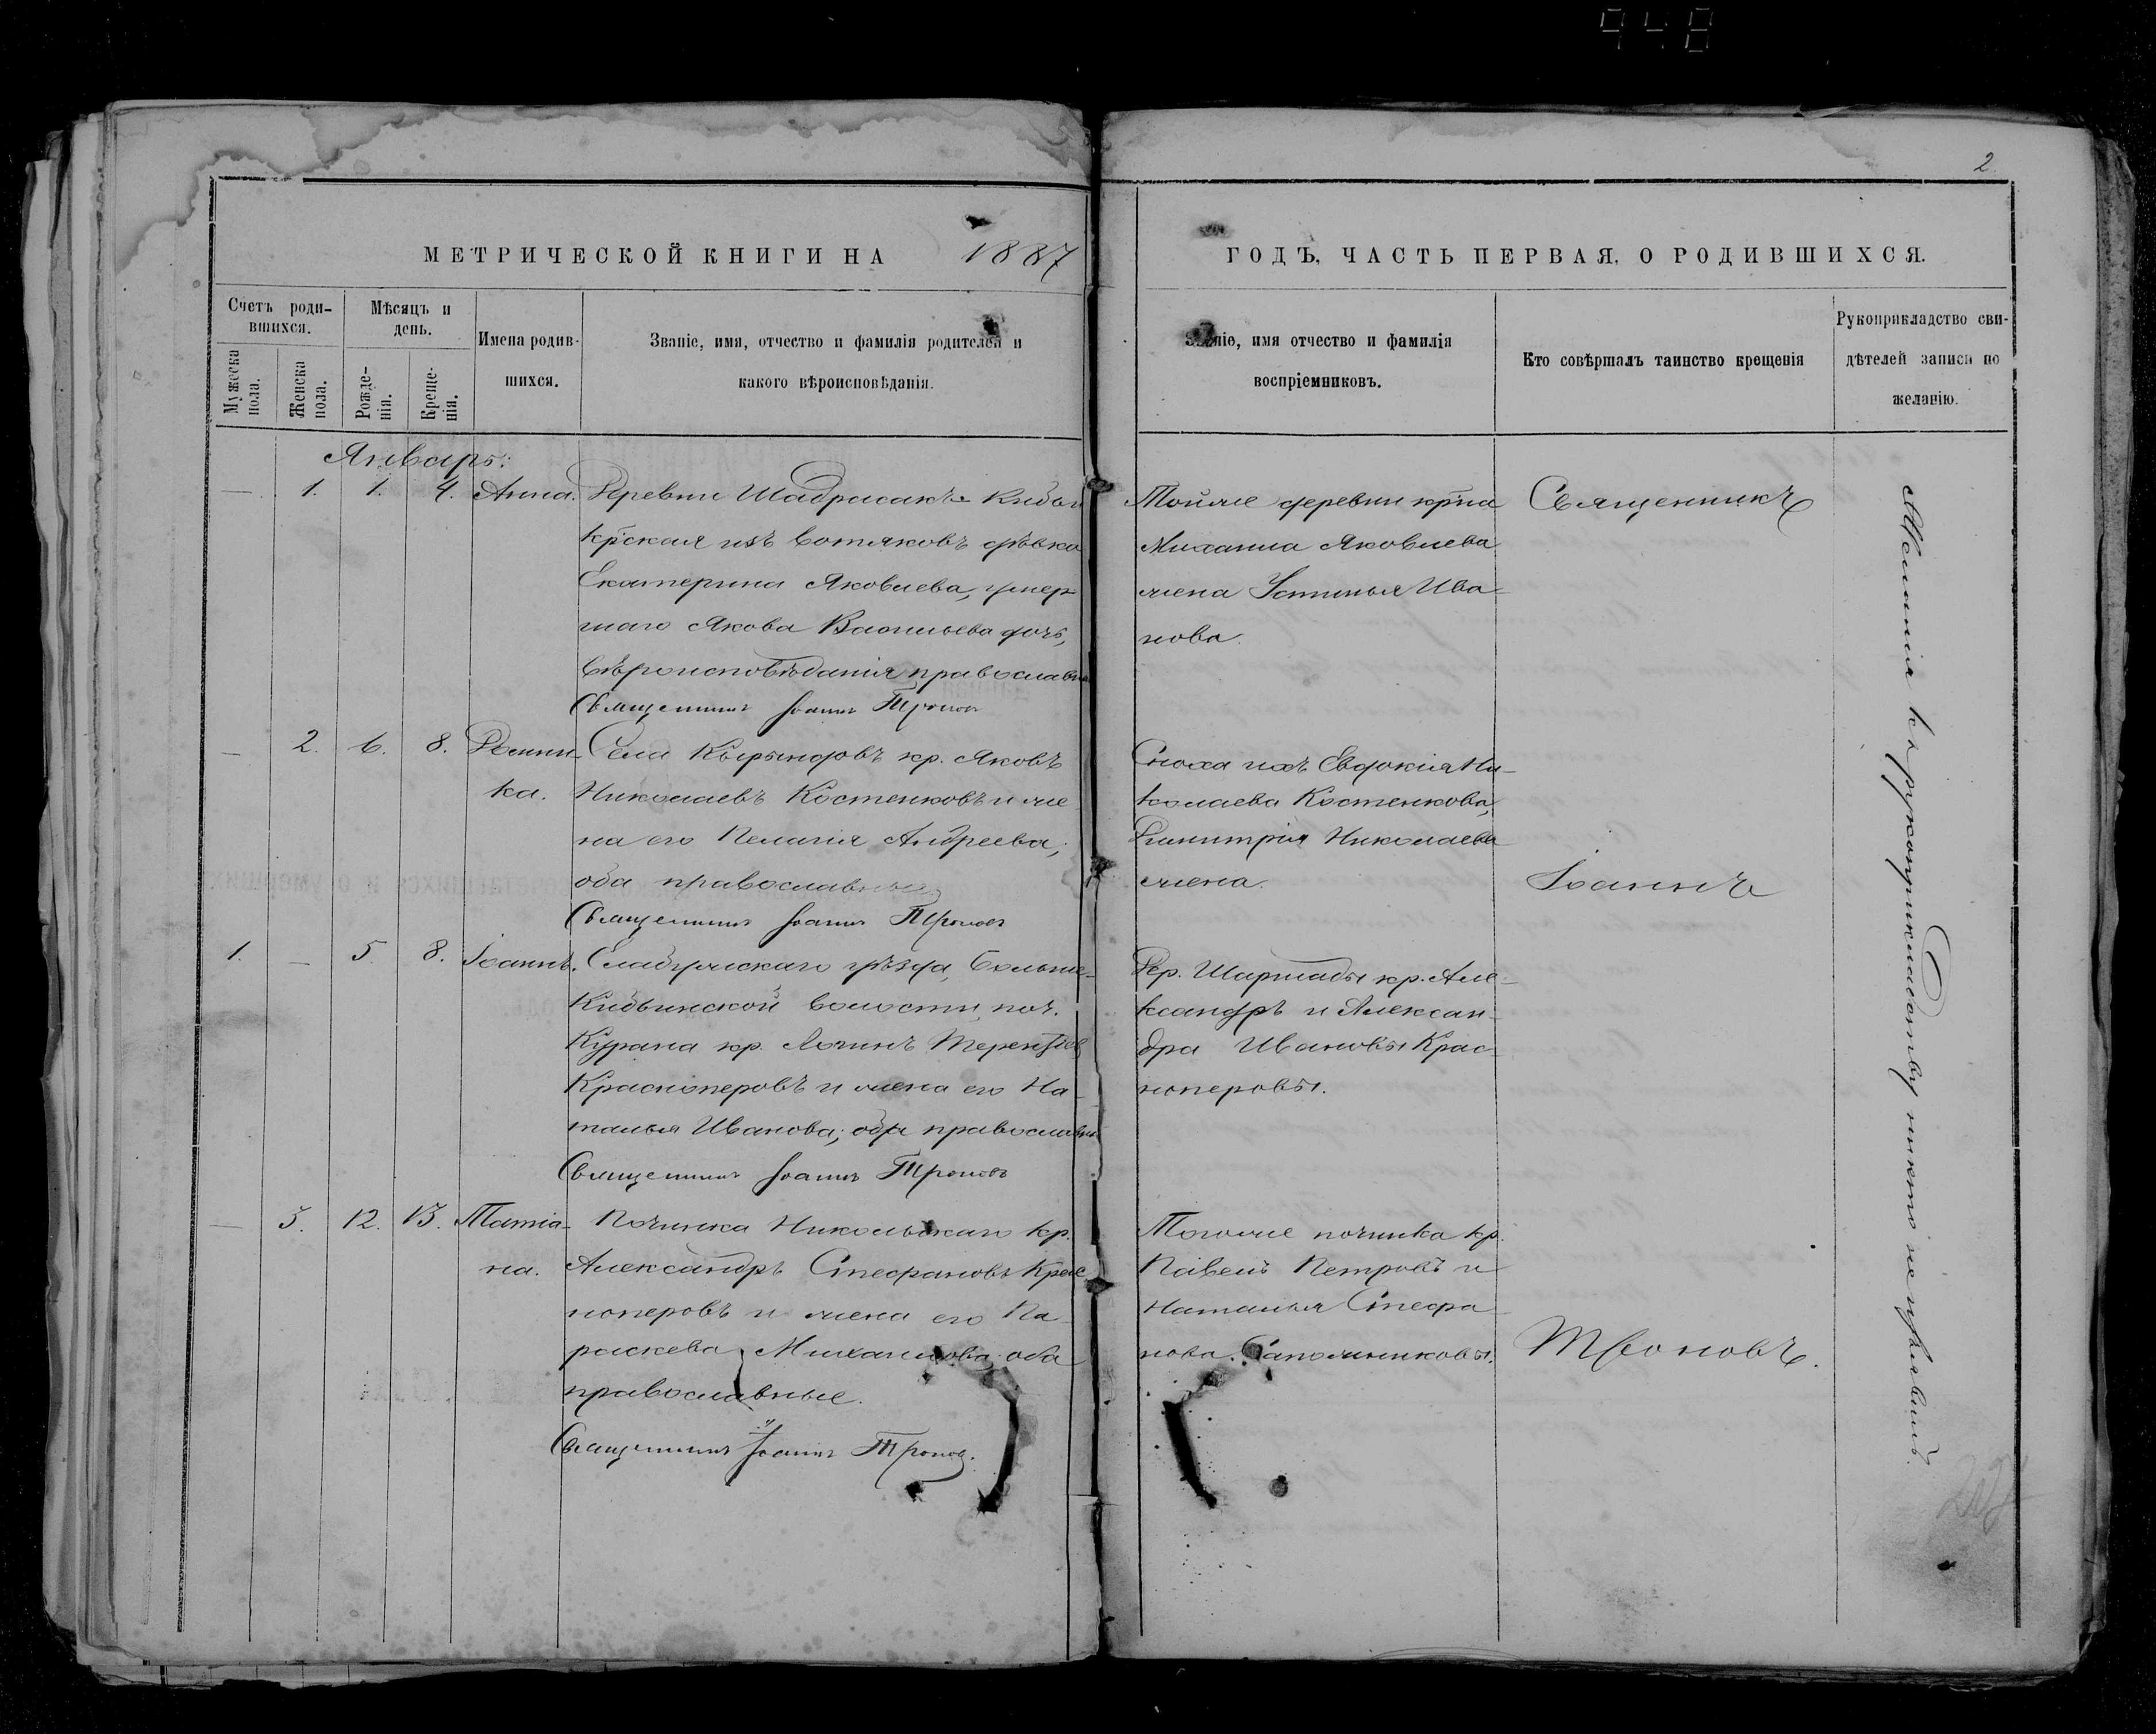 948
2
МЕТРИЧЕСКОЙ КНИГИ НА 1887
ГОДЪ, ЧАСТЬ ПЕРВАЯ, О РОДИВШИХСЯ.
Счетъ роди-
вшихся.
Мужеска
пола.
Женска
пола.
Мѣсяцъ и
день.
Рожде-
нія.
Креще-
нія.
Имена родив-
шихся.
Званіе, имя, отчество и фамилія родителей и
какого вѣроисповѣданія.
Званіе, имя отчество и фамилія
воспріемниковъ.
Кто совѣршалъ таинство крещенія
Рукоприкладство сви-
дѣтелей записи по
желанію.
Январь:
— 1. 1. 4. Анна. Деревни
кр̃ская изъ вотяковъ дѣвка
Екатерина Яковлева, умер
шаго Якова Васильева дочь,
вѣроисповѣданія православн
Священникъ Іоаннъ Троновъ
Тойже деревни кр̃на
Михаила Яковлева
жена Устинья Ива
нова.
— 2. 6. 8. Домни-
ка.
Села Кырындовъ кр. Яковъ
Николаевъ Костенковъ и же
на его Пелагія Андреева;
оба православные
Священникъ Іоаннъ Троновъ
Сноха ихъ Евдокія Ни-
колаева Костенкова,
Димитрія Николаева
жена.
1. — 5. 8. Іоаннъ. Елабужскаго уѣзда, Больше-
Кибьинской волости, поч.
Курана кр. Логинъ Терентьев
Красноперовъ и жена его На-
талья Иванова; оба православн
Священникъ Іоаннъ Троновъ
Дер. Шаршады кр. Але-
ксандръ и Алексан-
дра Ивановы Крас-
ноперовы.
— 3. 12. 13. Татіа-
на.
Починка Никольскаго кр.
Александръ Стефановъ Крас
ноперовъ и жена его Па-
раскева Михаилова; оба
православные.
Священникъ Іоаннъ Троновъ.
Тогоже починка кр.
Павелъ Петровъ и
Наталья Стефа
нова Сапожниковы.
Священникъ
Іоаннъ
Троновъ.
Желанія къ рукоприкладству никто не изъявилъ.